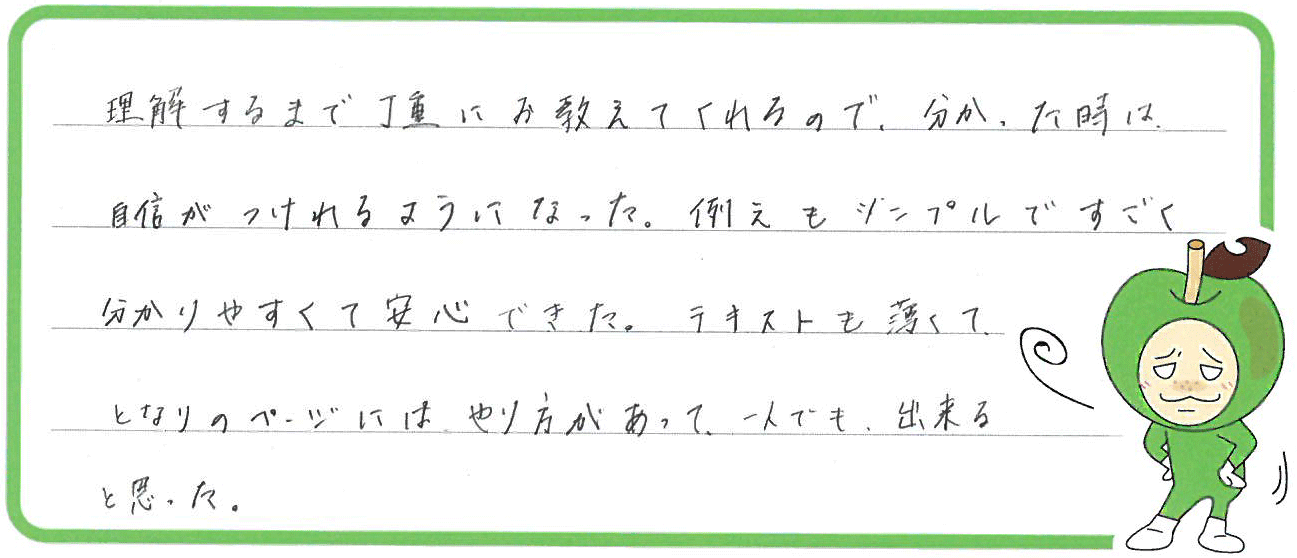 理解するまで丁重にお教えてくれるので、分かった時は、
自信がつけれるようになった。例えもシンプルですごく
分かりやすくて安心できた。テキストも薄くて、
となりのページにはやり方があって、一人でも、出来る
と思った。